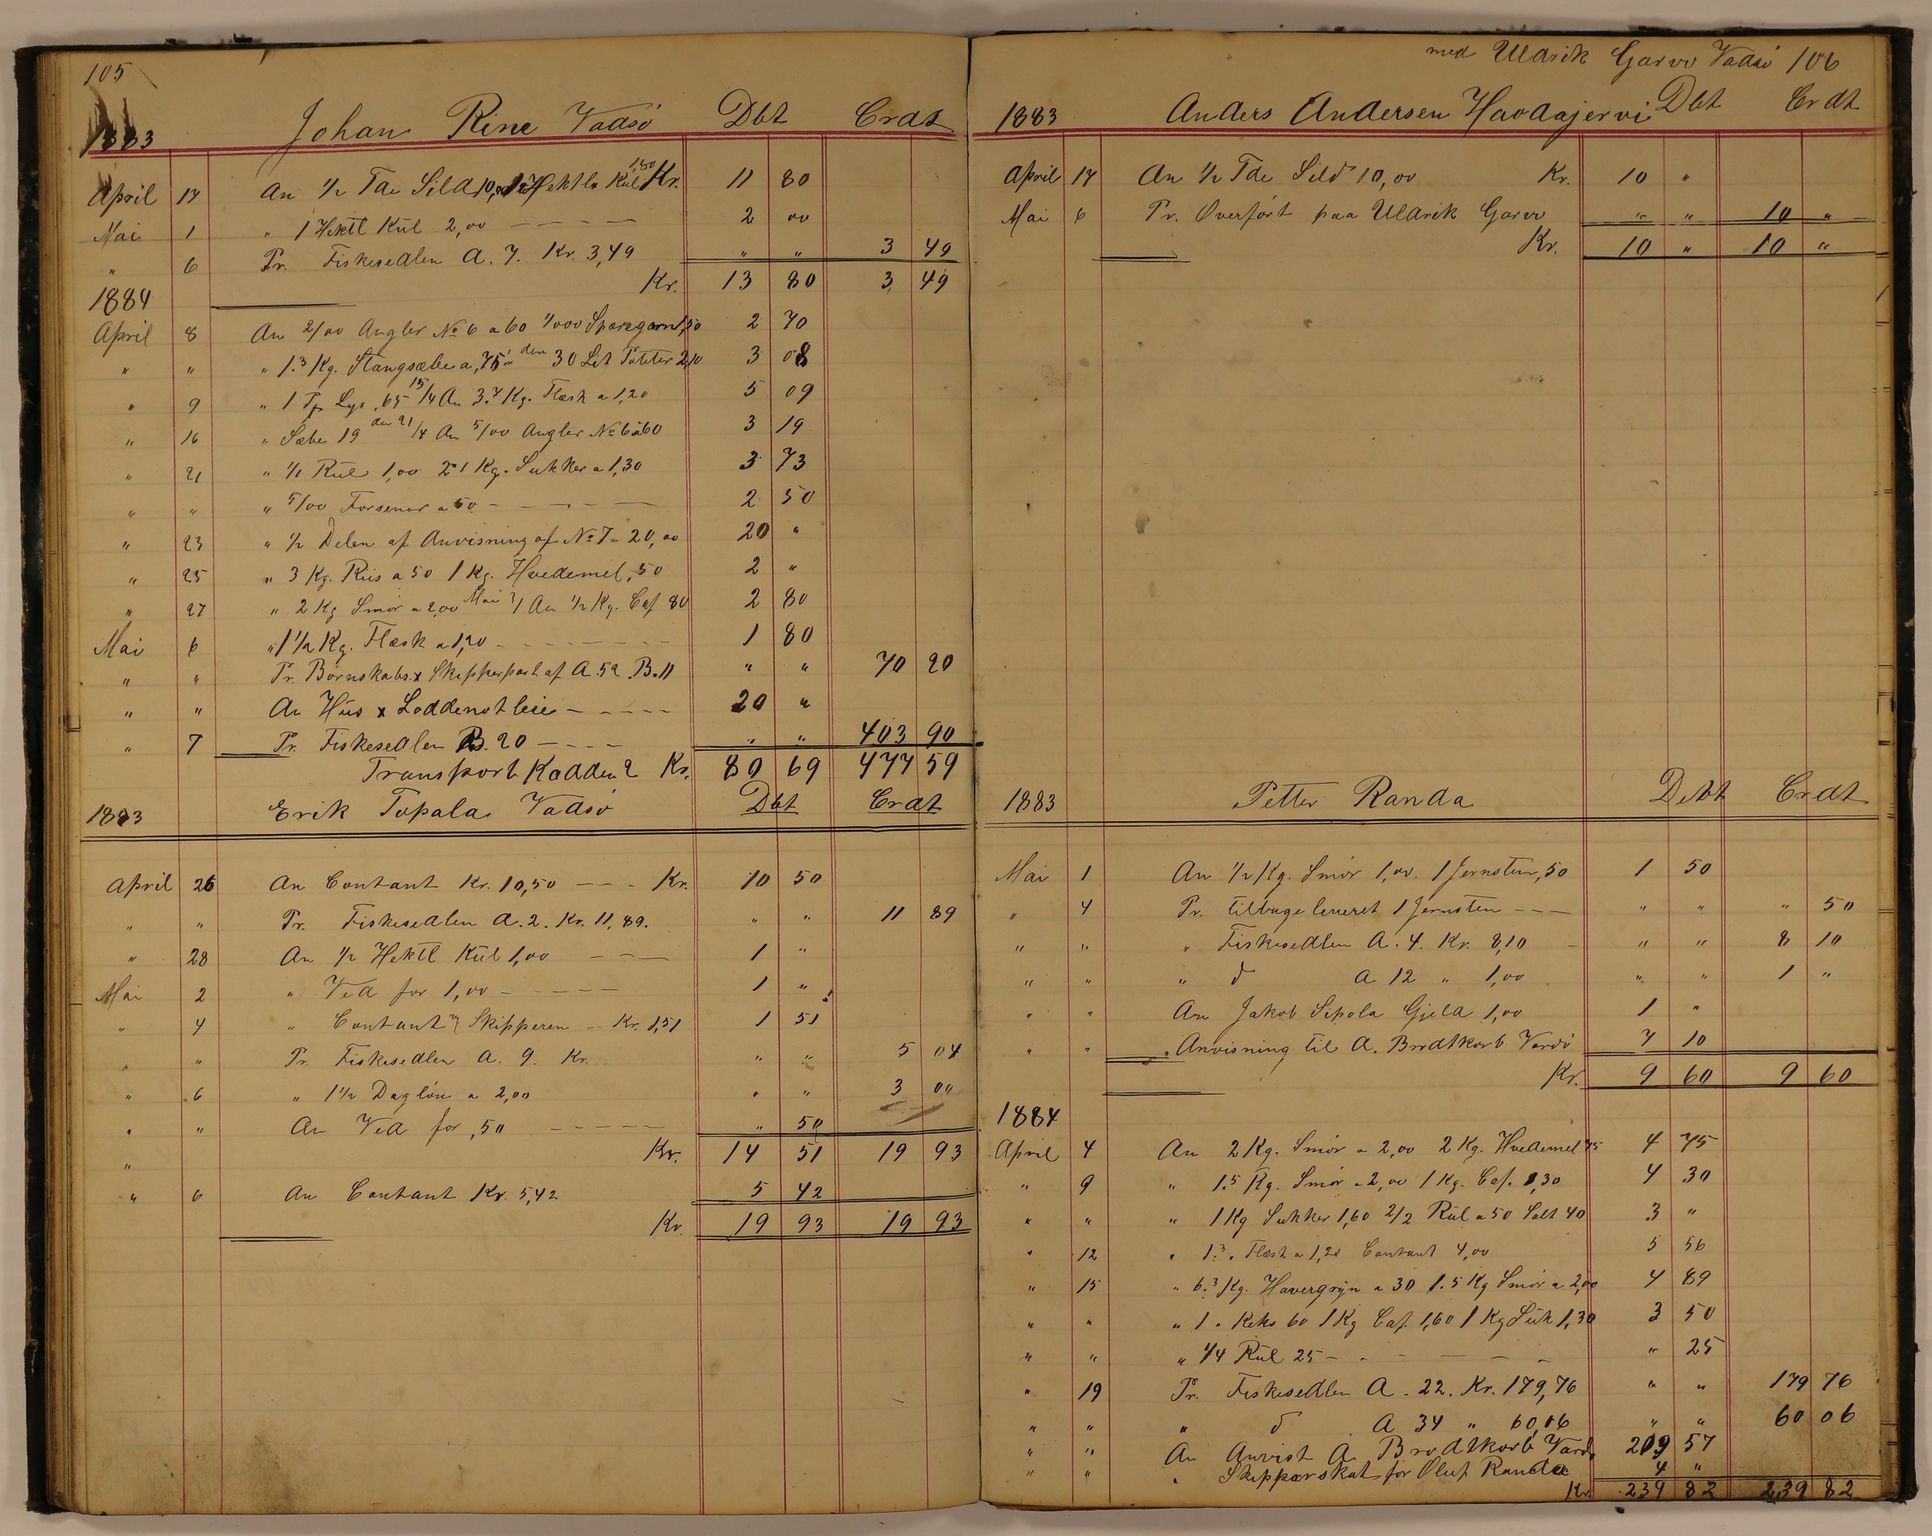 105
1883 Johan Rine Vadsö Dbt Crdt
April 17 An 1/2 Tde Sild 10,00 Hektlr Kul 1,80 Kr. 11 80
Mai 1 " 1 Hektl Kul 2,00 - - - - 2 00
" 6 Pr. Fiskesedlen A. 7. Kr. 3,49 " " 3 49
Kr. 13 80 3 49
1884
April 8 An 2/00 Angler No 6 a 60 1/000 Snöregarn 1,50 2 70
" " " 1.3 Kg. Stangsæbe a ,75 den 30 Let Poteter 2,10 3 08
" 9 " 1 Pk Lys ,65 15/4 An 3.7 Kg. Flæsk a 1,20 5 09
" 16 " Sæbe 19 den 21/4 An 5/00 Angler No 6 a 60 3 19
" 21 " 1/1 Rul 1,00 2.1 Kg. Sukker a 1,30 3 73
" " " 5/00 Forsener a 50 - - - - 2 50
" 23 " 1/2 Delen af Anvisning af No 7 - 20,00 20 "
" 25 " 3 Kg. Riis a 50 1 Kg. Hvedemel ,50 2 "
" 27 " 2 Kg Smör a 2,00 Mai 1 An 1/2 Kg. Caf 80 2 80
Mai 6 " 1 1/2 Kg. Flæsk a 1,20 - - - - - 1 80
" " Pr. Börnskabs x Skipperpart af A. 52 B. 11 " " 70 20
" " An Hus x Loddenotleie - - - - - 20 "
" 7 Pr. Fiskesedlen B. 20 - - - - " " 403 90
Transport Kadden 2 Kr. 80 69 477 59
1883 Erik Topala Vadsö Dbt Crdt
April 26 An Contant Kr. 10,50 - - - Kr. 10 50
" " Pr. Fiskesedlen A. 2. Kr. 11,89. " " 11 89
" 28 An 1/2 Hektl Kul 1,00 - - - 1 "
Mai 2 " Ved for 1,00 - - - - - 1 "
" 4 " Contant Skipperen - Kr. 1,51 1 51
" " Pr. Fiskesedlen A. 9. Kr. " " 5 04
" 6 " 1 1/2 Daglön a 2,00 " " 3 00
" " An Ved for ,50 - - - - - " 50
" Kr. 14 51 19 93
" 6 An Contant Kr. 5,42 5 42
Kr. 19 93 19 93
med Uldrik Garvo Vadsö 106
1883 Anders Andersen Havdajervi Dbt Crdt
April 17 An 1/2 Tde Sild 10,00 Kr. 10 "
Mai 6 Pr. Overfört paa Uldrik Garvo " " 10 "
Kr. 10 " 10 "
1883 Petter Randa Debt Crdt
Mai 1 An 1/2 Kg. Smör 1,00. 1 Jernsten ,50 1 50
" 4 Pr. tilbageleveret 1 Jernsten - - - " " " 50
" " " Fiskesedlen A. 4. Kr. 8,10 - " " 8 10
" " " d A 12 " 1,00 " " 1 "
" " An Jakob Sipola Gjeld 1,00 1 "
" " " Anvisning til A. Brodtkorb Vardö 7 10
Kr. 9 60 9 60
1884
April 4 An 2 Kg. Smör a 2,00 2 Kg. Hvedemel 75 4 75
" 9 " 1.5 Kg. Smör a 2,00 1 Kg. Caf. 1,30 4 30
" " " 1 Kg Sukker 1,60 2/2 Rul a 50 Salt 40 3 "
" 12 " 1.3 " Flæsk a 1,20 Contant 4,00 5 56
" 15 " 6.3 Kg. Havergryn a 30 1.5 Kg Smör a 2,00 4 89
" " " 1 " Keks 60 1 Kg Caf. 1,60 1 Kg Suk 1,30 3 50
" " " 1/4 Rul 25 - - - - - " 25
" 19 Pr. Fiskesedlen A. 22. Kr. 179,76 " " 179 76
" " " d A 34 " 60,06 " " 60 06
" " An Anvist A. Brodtkorb Vardö 209 57
" " " Skipperskat for Oluf Randa 4 "
Kr. 239 82 239 82